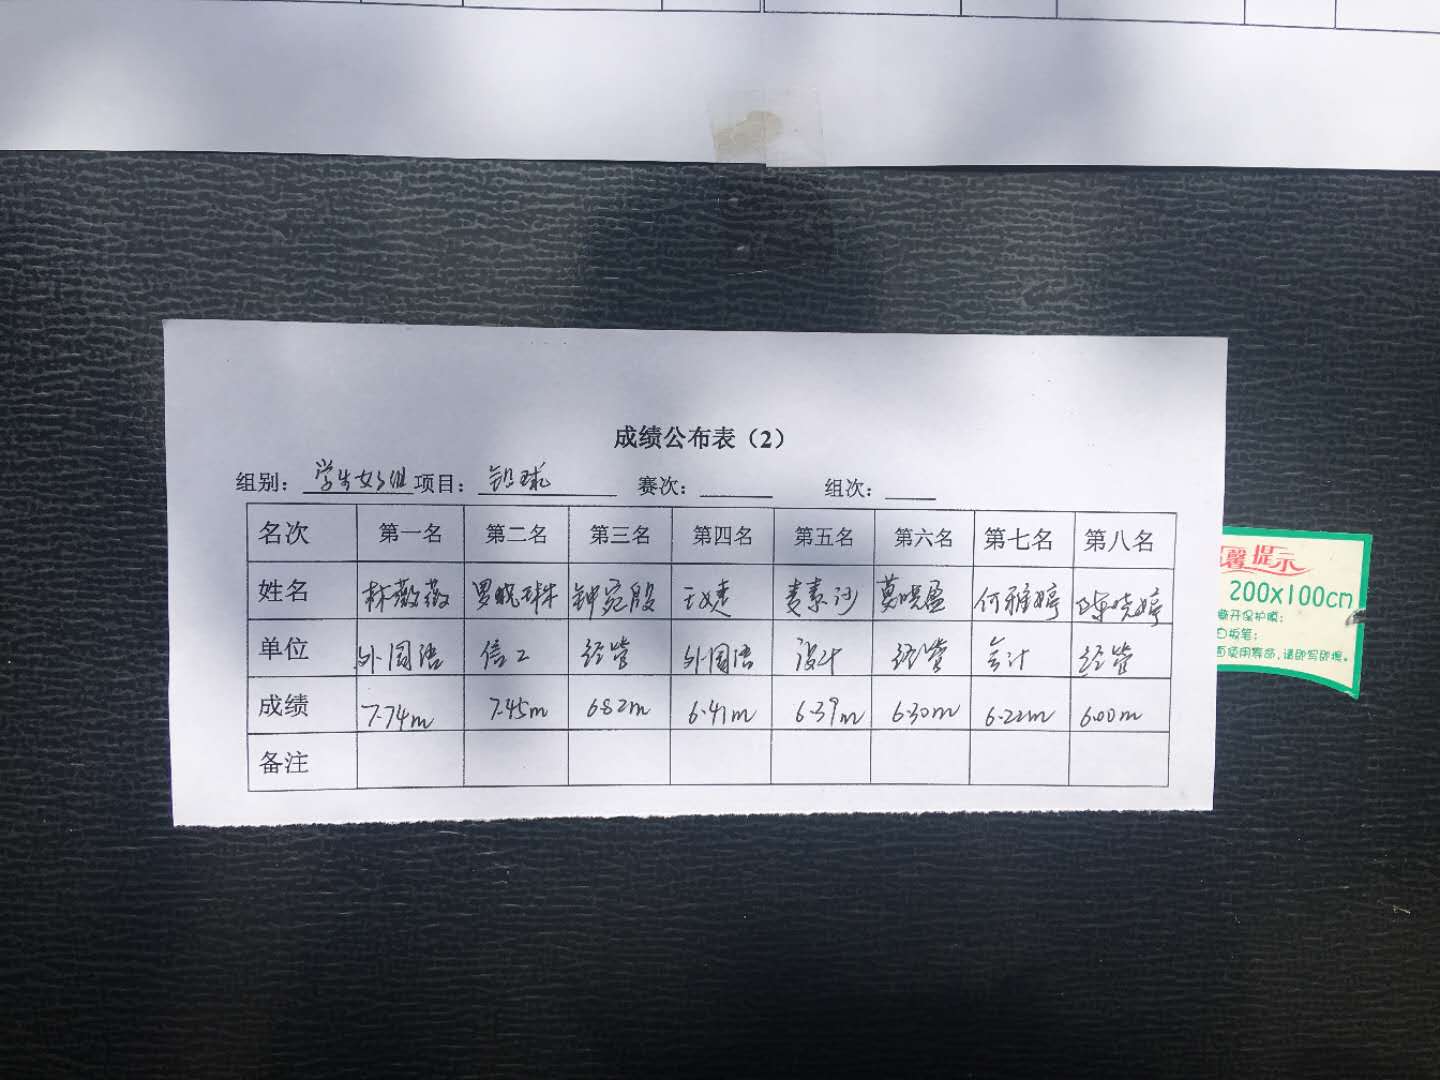 成绩公布表（2）
组别：学生女子组 项目：铅球 赛次： 组次：
名次 第一名 第二名 第三名 第四名 第五名 第六名 第七名 第八名
姓名 林薇薇 罗晓琳 钟宛殷 麦素沙 莫晓盈 何雅婷 陈晓婷
单位 外国语 信工 经管 外国语 设计 经管 会计 经管
成绩 7.74m 7.45m 6.82m 6.41m 6.39m 6.30m 6.22m 6.00m
备注
馨提示
200x100cm
开保护膜；
白板笔；
面使用寿命，请即写即擦。